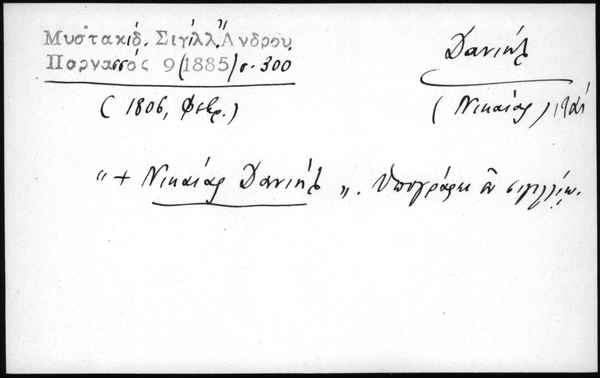 Μυστακιδ. Σιγίλλ. Ἄνδρου
Πορνασσός 9 (1885) σ. 300
(1806, Φεβρ.)
Δανιήλ
(Νικαίας)
"+ Νικαίας Δανιήλ". Ὑπογράφει ἐν σιγιλλίῳ.